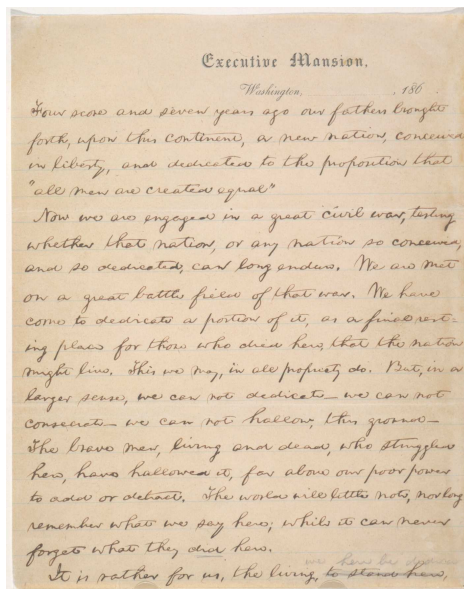 Executive Mansion,
Washington, 186 .
Four score and seven years ago our fathers brought
forth, upon this continent, a new nation, conceived
in liberty, and dedicated to the proposition that
"all men are created equal"
Now we are engaged in a great civil war, testing
whether that nation, or any nation so conceived,
and so dedicated, can long endure. We are met
on a great battle field of that war. We have
come to dedicate a portion of it, as a final rest-
ing place for those who died here, that the nation
might live. This we may, in all propriety do. But, in a
larger sense, we can not dedicate — we can not
consecrate — we can not hallow, this ground —
The brave men, living and dead, who struggled
here, have hallowed it, far above our poor power
to add or detract. The world will little note, nor long
remember what we say here; while it can never
forget what they did here.
we here be dedica
It is rather for us, the living, to stand here,